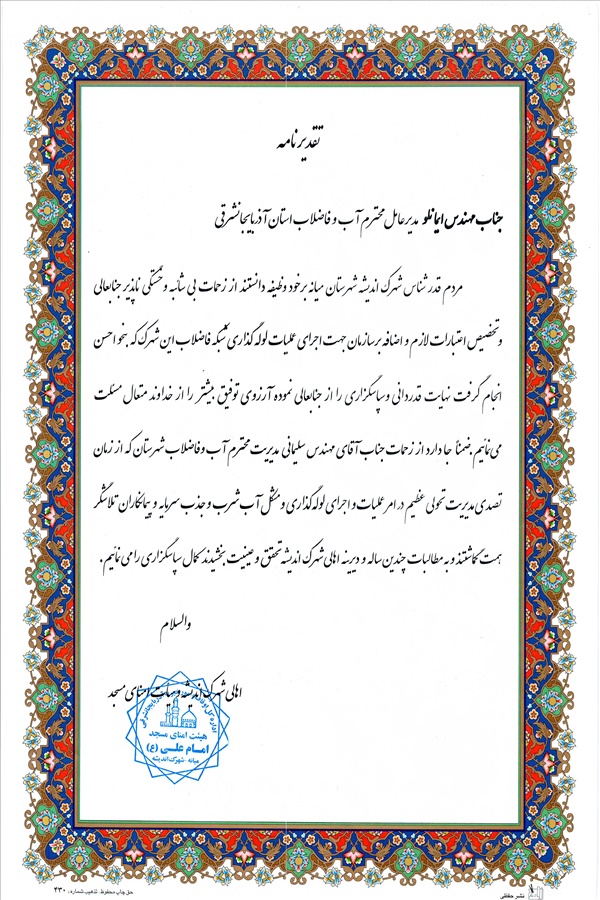 تقدیرنامه
جناب مهندس ایمانلو مدیرعامل محترم آب و فاضلاب استان آذربایجانشرقی
مردم قدرشناس شهرک اندیشه شهرستان میانه برخود وظیفه دانستند از زحمات بی شائبه و خستگی ناپذیر جنابعالی
و تخصیص اعتبارات لازم و اضافه بر سازمان جهت اجرای عملیات لوله گذاری شبکه فاضلاب این شهرک که بنحو احسن
انجام گرفت نهایت قدردانی و سپاسگزاری را از جنابعالی نموده آرزوی توفیق بیشتر را از خداوند متعال مسئلت
می نمائیم ضمناً جا دارد از زحمات جناب آقای مهندس سلیمانی مدیریت محترم آب و فاضلاب شهرستان که از زمان
تصدی مدیریت تحولی عظیم در امر عملیات و اجرای لوله گذاری و مشکل آب شرب و جذب سرمایه و پیمانکاران تلاشگر
همت گماشتند و به مطالبات چندین ساله و دیرینه اهالی شهرک اندیشه تحقق و عینیت بخشیدند کمال سپاسگزاری را می نمائیم.
والسلام
اهالی شهرک اندیشه و هیات امنای مسجد
هیئت امنای مسجد
امام علی (ع)
میانه - شهرک اندیشه
نشر حقانی
حق چاپ محفوظ تذهیب شماره: ۴۳۰